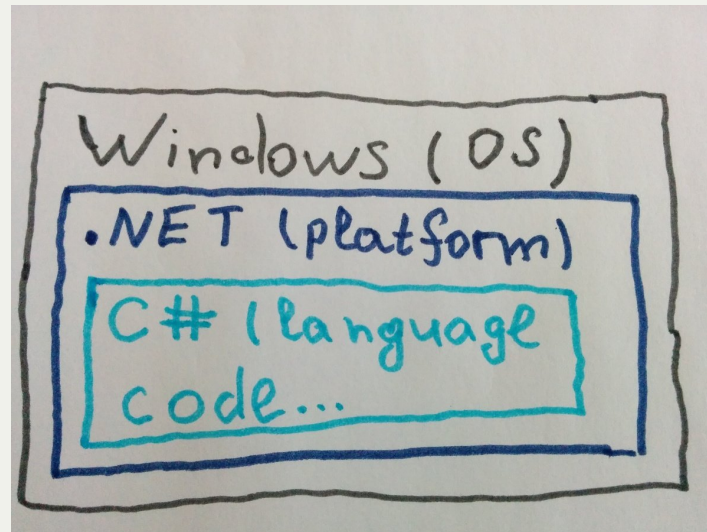 Windows (OS)
.NET (platform)
C# (language
code...